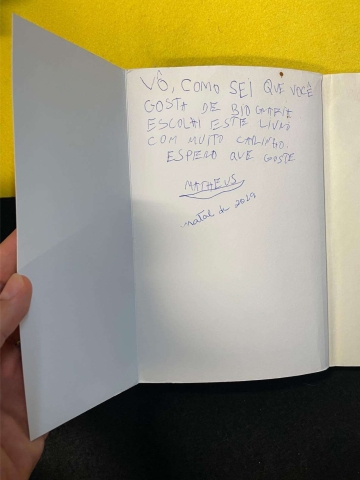 VÔ, COMO SEI QUE VOCÊ
GOSTA DE BIOGRAFIA
ESCOLHI ESTE LIVRO
COM MUITO CARINHO.
ESPERO QUE GOSTE
MATHEUS
natal de 2019